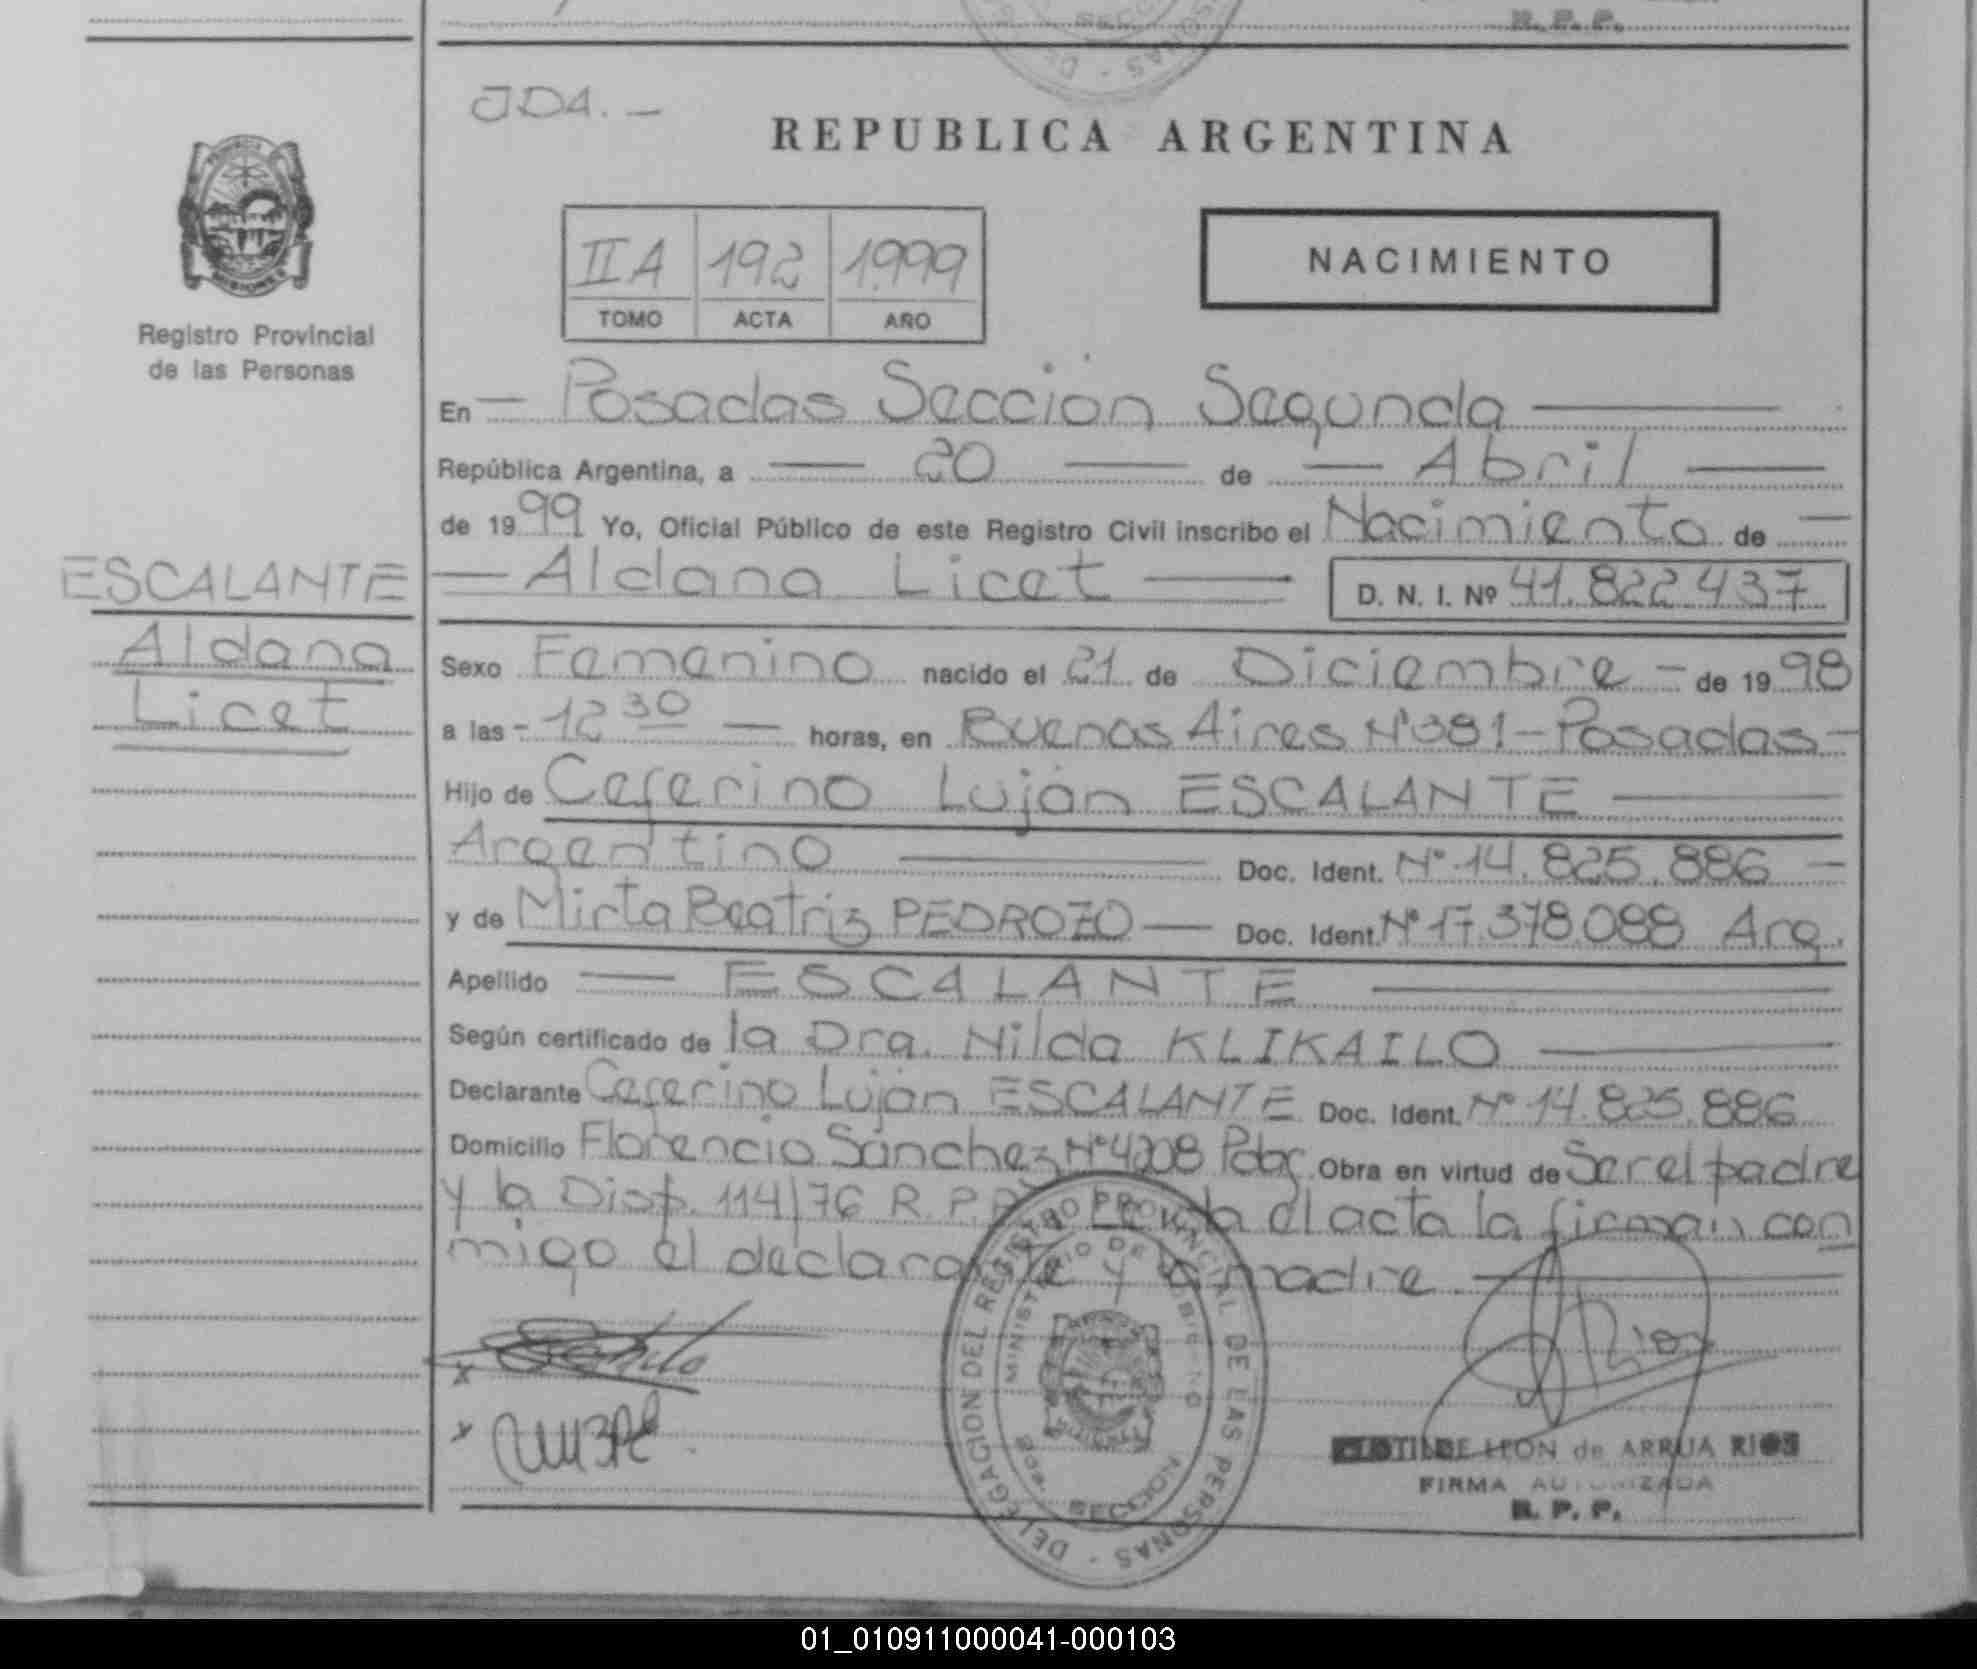 R. P. P.
JDA. -
REPUBLICA ARGENTINA
II A 192 1.999
TOMO ACTA AÑO
NACIMIENTO
Registro Provincial
de las Personas
En - Posadas Sección Segunda
República Argentina, a 20 de Abril
de 1999 Yo, Oficial Público de este Registro Civil inscribo el Nacimiento de
ESCALANTE
Aldana
Licet
Aldana Licet D. N. I. Nº 41.822.437
Sexo Femenino nacido el 21 de Diciembre - de 1998
a las - 12 30 horas, en Buenos Aires Nº381 - Posadas -
Hijo de Ceferino Luján ESCALANTE
Argentino Doc. Ident. Nº 14.825.886 -
y de Mirta Beatriz PEDROZO - Doc. Ident. Nº 17.378.088 Arg.
Apellido ESCALANTE
Según certificado de la Dra. Nilda KLIKAILO
Declarante Ceferino Luján ESCALANTE Doc. Ident. Nº 14.825.886
Domicilio Florencio Sánchez Nº4208 Pdas. Obra en virtud de Ser el padre
y la Disp. 114/76 R. P. P. Leída el acta la firman con
migo el declarante y la madre
DELEGACION DEL REGISTRO PROVINCIAL DE LAS PERSONAS -
MINISTERIO DE GOBIERNO
SECCION
Rios
CLOTILDE LEON de ARRUA RIOS
FIRMA AUTORIZADA
R. P. P.
01_010911000041-000103